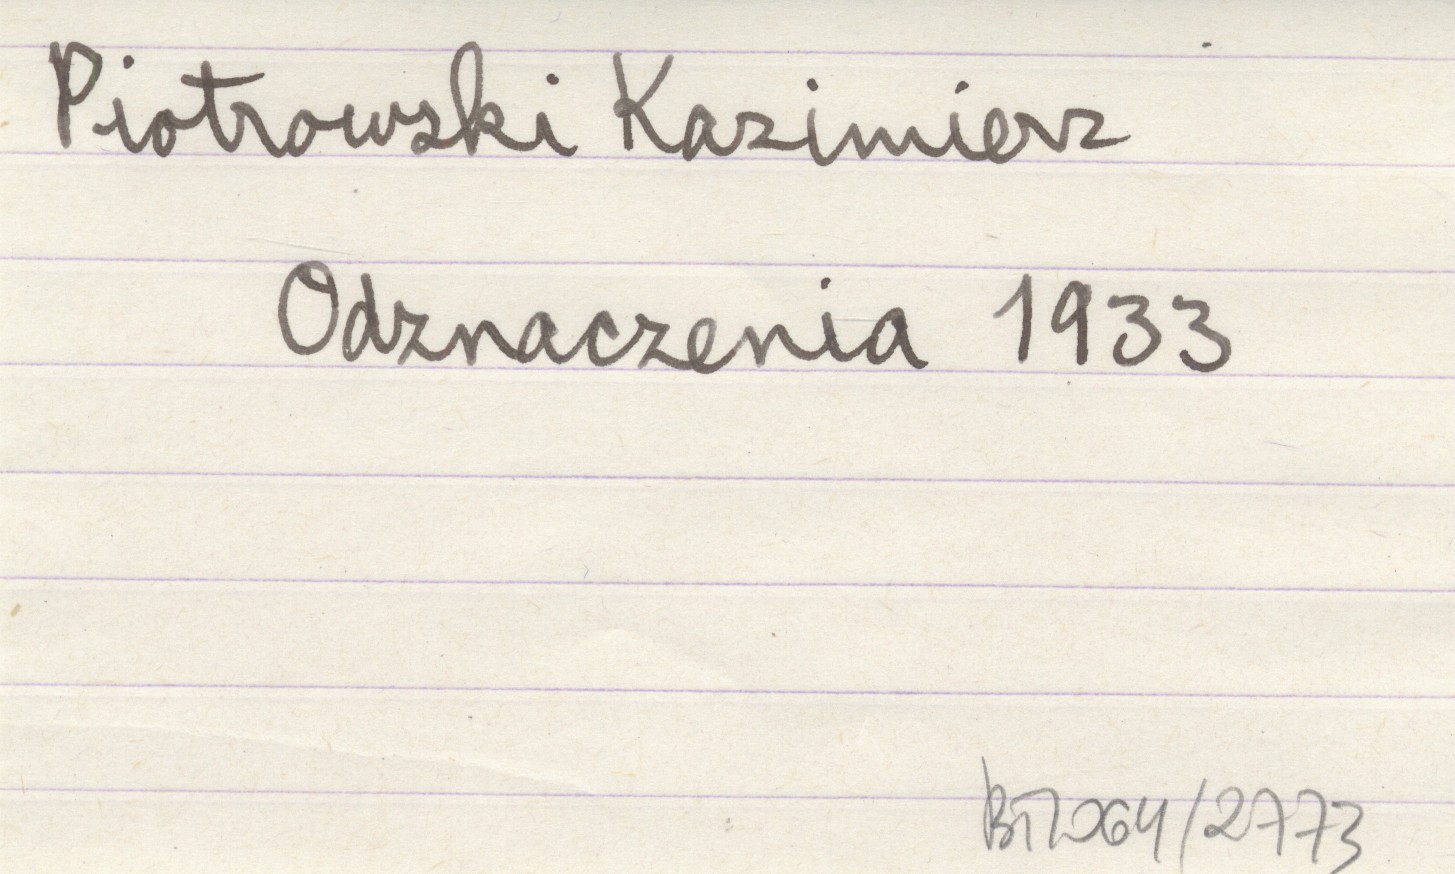 Piotrowski Kazimierz
Odznaczenia 1933
/2773